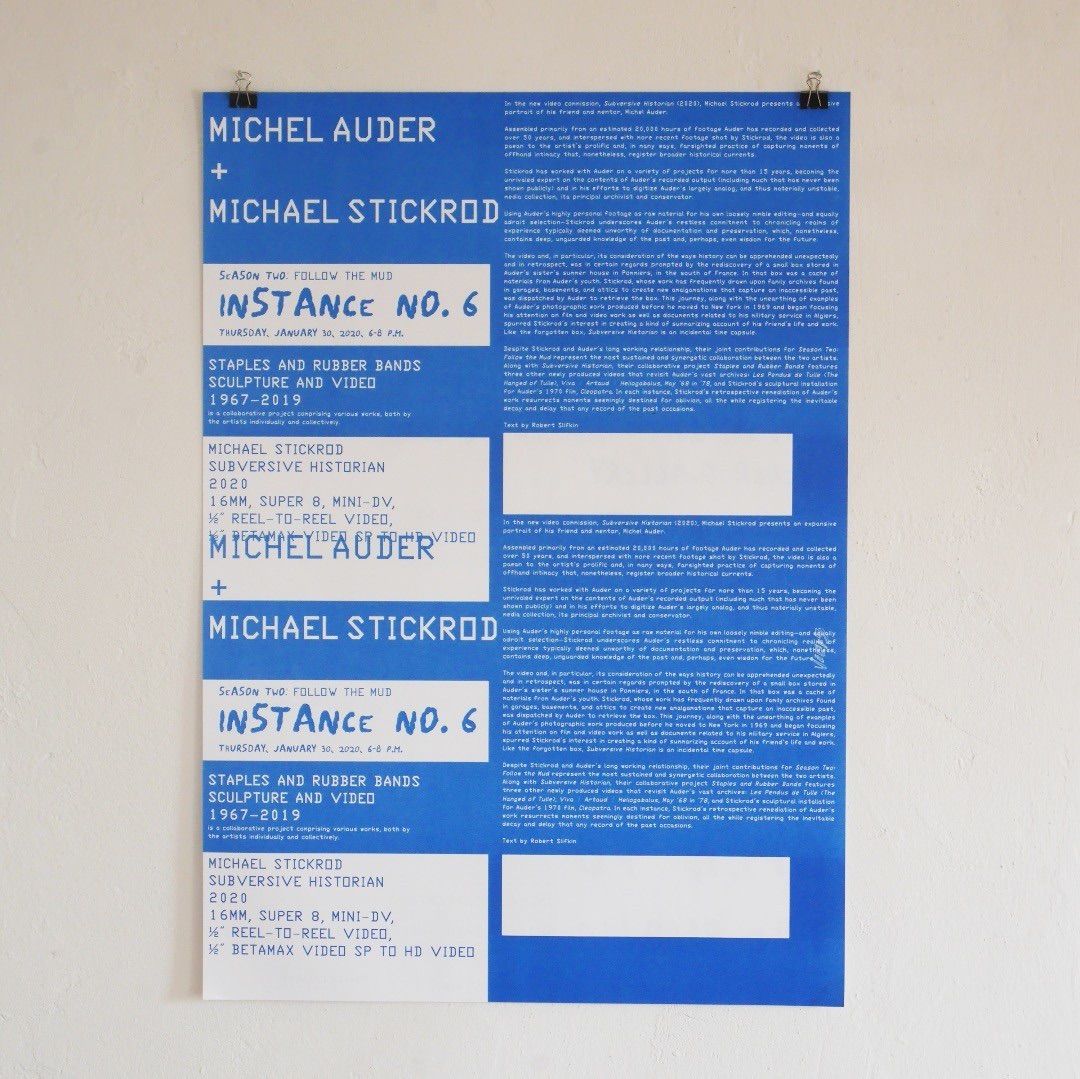 MICHEL AUDER
+
MICHAEL STICKROD
SEASON TWO: FOLLOW THE MUD
INSTANCE NO. 6
THURSDAY, JANUARY 30, 2020, 6-8 P.M.
STAPLES AND RUBBER BANDS
SCULPTURE AND VIDEO
1967–2019
is a collaborative project comprising various works, both by
the artists individually and collectively.
MICHAEL STICKROD
SUBVERSIVE HISTORIAN
2020
16MM, SUPER 8, MINI-DV,
½" REEL-TO-REEL VIDEO,
½" BETAMAX VIDEO SP TO HD VIDEO
MICHEL AUDER
+
MICHAEL STICKROD
SEASON TWO: FOLLOW THE MUD
INSTANCE NO. 6
THURSDAY, JANUARY 30, 2020, 6-8 P.M.
STAPLES AND RUBBER BANDS
SCULPTURE AND VIDEO
1967–2019
is a collaborative project comprising various works, both by
the artists individually and collectively.
MICHAEL STICKROD
SUBVERSIVE HISTORIAN
2020
16MM, SUPER 8, MINI-DV,
½" REEL-TO-REEL VIDEO,
½" BETAMAX VIDEO SP TO HD VIDEO
In the new video commission, Subversive Historian (2020), Michael Stickrod presents
portrait of his friend and mentor, Michel Auder.
Assembled primarily from an estimated 20,000 hours of footage Auder has recorded and collected
over 50 years, and interspersed with more recent footage shot by Stickrod, the video is also a
paean to the artist's prolific and, in many ways, farsighted practice of capturing moments of
offhand intimacy that, nonetheless, register broader historical currents.
Stickrod has worked with Auder on a variety of projects for more than 15 years, becoming the
unrivaled expert on the contents of Auder's recorded output (including much that has never been
shown publicly) and in his efforts to digitize Auder's largely analog, and thus materially unstable,
media collection, its principal archivist and conservator.
Using Auder's highly personal footage as raw material for his own loosely nimble editing—and equally
adroit selection—Stickrod underscores Auder's restless commitment to chronicling realms of
experience typically deemed unworthy of documentation and preservation, which, nonetheless,
contains deep, unguarded knowledge of the past and, perhaps, even wisdom for the future.
The video and, in particular, its consideration of the ways history can be apprehended unexpectedly
and in retrospect, was in certain regards prompted by the rediscovery of a small box stored in
Auder's sister's summer house in Pommiers, in the south of France. In that box was a cache of
materials from Auder's youth. Stickrod, whose work has frequently drawn upon family archives found
in garages, basements, and attics to create new amalgamations that capture an inaccessible past,
was dispatched by Auder to retrieve the box. This journey, along with the unearthing of examples
of Auder's photographic work produced before he moved to New York in 1969 and began focusing
his attention on film and video work as well as documents related to his military service in Algiers,
spurred Stickrod's interest in creating a kind of summarizing account of his friend's life and work.
Like the forgotten box, Subversive Historian is an incidental time capsule.
Despite Stickrod and Auder's long working relationship, their joint contributions for Season Two:
Follow the Mud represent the most sustained and synergetic collaboration between the two artists.
Along with Subversive Historian, their collaborative project Staples and Rubber Bands features
three other newly produced videos that revisit Auder's vast archives: Les Pendus de Tulle (The
Hanged of Tulle), Viva | Artaud | Heliogabalus, May '68 in '78, and Stickrod's sculptural installation
for Auder's 1970 film, Cleopatra. In each instance, Stickrod's retrospective remediation of Auder's
work resurrects moments seemingly destined for oblivion, all the while registering the inevitable
decay and delay that any record of the past occasions.
Text by Robert Slifkin
In the new video commission, Subversive Historian (2020), Michael Stickrod presents an expansive
portrait of his friend and mentor, Michel Auder.
Assembled primarily from an estimated 20,000 hours of footage Auder has recorded and collected
over 50 years, and interspersed with more recent footage shot by Stickrod, the video is also a
paean to the artist's prolific and, in many ways, farsighted practice of capturing moments of
offhand intimacy that, nonetheless, register broader historical currents.
Stickrod has worked with Auder on a variety of projects for more than 15 years, becoming the
unrivaled expert on the contents of Auder's recorded output (including much that has never been
shown publicly) and in his efforts to digitize Auder's largely analog, and thus materially unstable,
media collection, its principal archivist and conservator.
Using Auder's highly personal footage as raw material for his own loosely nimble editing—and equally
adroit selection—Stickrod underscores Auder's restless commitment to chronicling realms of
experience typically deemed unworthy of documentation and preservation, which, nonetheless,
contains deep, unguarded knowledge of the past and, perhaps, even wisdom for the future.
The video and, in particular, its consideration of the ways history can be apprehended unexpectedly
and in retrospect, was in certain regards prompted by the rediscovery of a small box stored in
Auder's sister's summer house in Pommiers, in the south of France. In that box was a cache of
materials from Auder's youth. Stickrod, whose work has frequently drawn upon family archives found
in garages, basements, and attics to create new amalgamations that capture an inaccessible past,
was dispatched by Auder to retrieve the box. This journey, along with the unearthing of examples
of Auder's photographic work produced before he moved to New York in 1969 and began focusing
his attention on film and video work as well as documents related to his military service in Algiers,
spurred Stickrod's interest in creating a kind of summarizing account of his friend's life and work.
Like the forgotten box, Subversive Historian is an incidental time capsule.
Despite Stickrod and Auder's long working relationship, their joint contributions for Season Two:
Follow the Mud represent the most sustained and synergetic collaboration between the two artists.
Along with Subversive Historian, their collaborative project Staples and Rubber Bands features
three other newly produced videos that revisit Auder's vast archives: Les Pendus de Tulle (The
Hanged of Tulle), Viva | Artaud | Heliogabalus, May '68 in '78, and Stickrod's sculptural installation
for Auder's 1970 film, Cleopatra. In each instance, Stickrod's retrospective remediation of Auder's
work resurrects moments seemingly destined for oblivion, all the while registering the inevitable
decay and delay that any record of the past occasions.
Text by Robert Slifkin